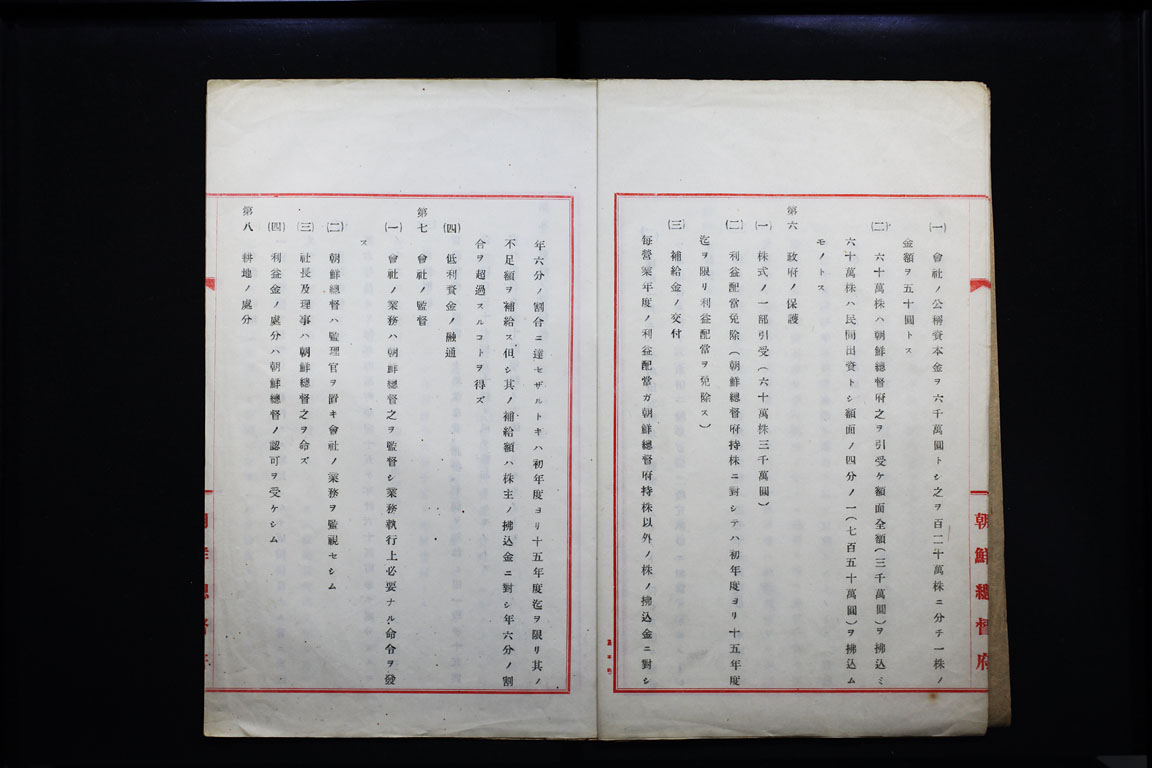 (一) 會社ノ公稱資本金ヲ六千萬圓トシ之ヲ百二十萬株ニ分チ一株ノ
金額ヲ五十圓トス
(二) 六十萬株ハ朝鮮總督府之ヲ引受ケ額面全額(三千萬圓)ヲ拂込ミ
六十萬株ハ民間出資トシ額面ノ四分ノ一(七百五十萬圓)ヲ拂込ム
モノトス
第六 政府ノ保護
(一) 株式ノ一部引受(六十萬株三千萬圓)
(二) 利益配當免除(朝鮮總督府持株ニ對シテハ初年度ヨリ十五年度
迄ヲ限リ利益配當ヲ免除ス)
(三) 補給金ノ交付
每營業年度ノ利益配當ガ朝鮮總督府持株以外ノ株ノ拂込金ニ對シ
年六分ノ割合ニ達セザルトキハ初年度ヨリ十五年度迄ヲ限リ其ノ
不足額ヲ補給ス但シ其ノ補給額ハ株主ノ拂込金ニ對シ年六分ノ割
合ヲ超過スルコトヲ得ズ
(四) 低利資金ノ融通
第七 會社ノ監督
(一) 會社ノ業務ハ朝鮮總督之ヲ監督シ業務執行上必要ナル命令ヲ發
ス
(二) 朝鮮總督ハ監理官ヲ置キ會社ノ業務ヲ監視セシム
(三) 社長及理事ハ朝鮮總督之ヲ命ズ
(四) 利益金ノ處分ハ朝鮮總督ノ認可ヲ受ケシム
第八 耕地ノ處分
朝鮮總督府